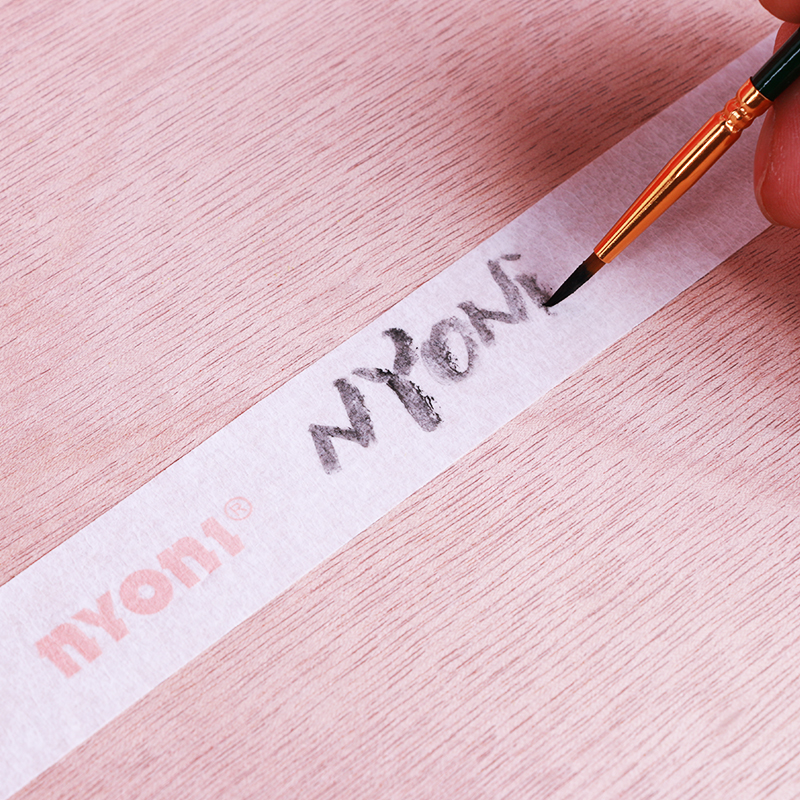 nyoni®
NYONi